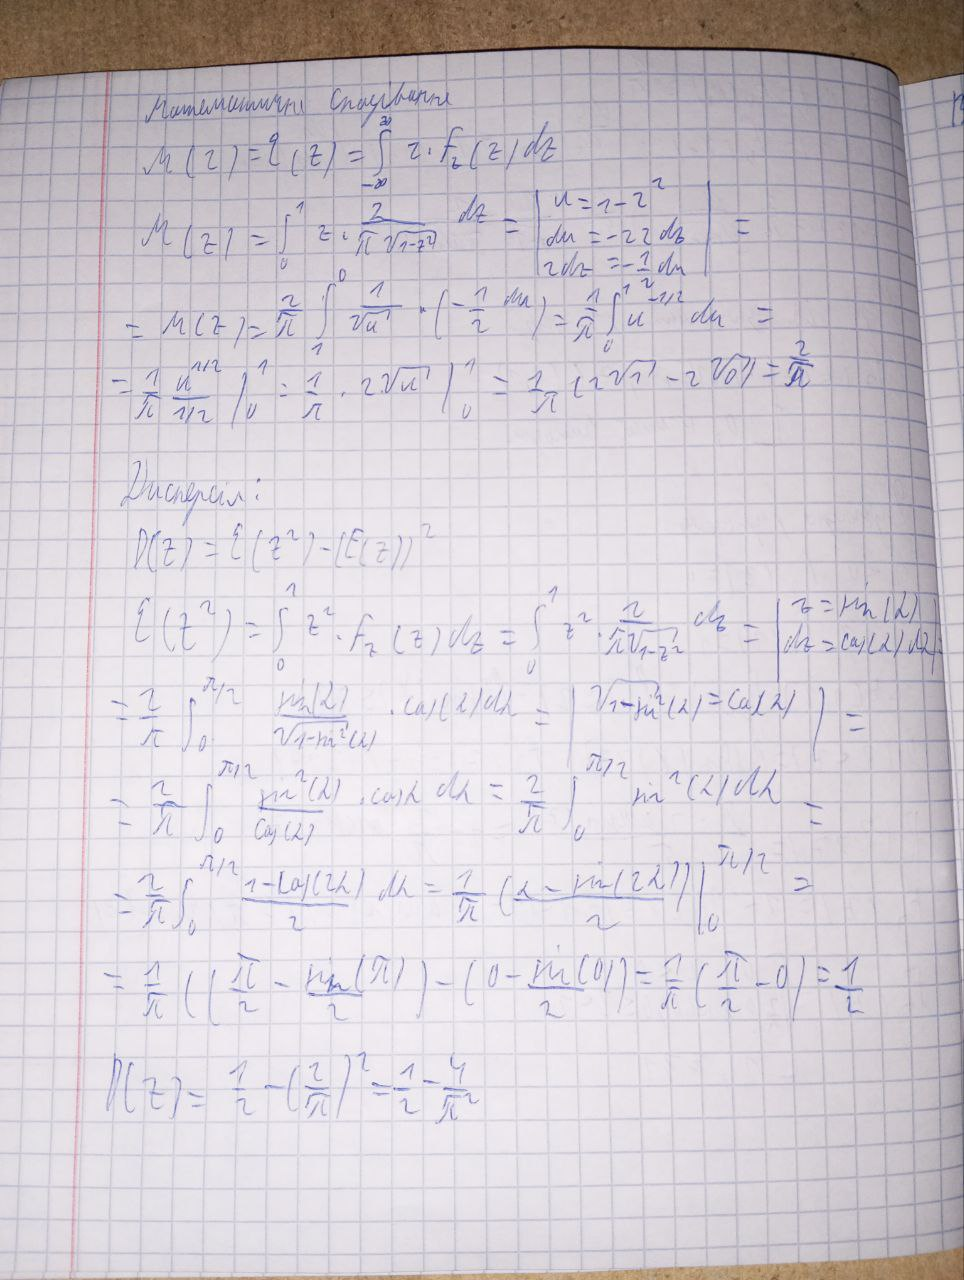 Математичне сподівання
M(z) = E(z) = ∫_{-∞}^{∞} z · f_z(z) dz
M(z) = ∫_0^1 z · 2/(π√(1-z²)) dz = | u = 1-z² ; du = -2z dz ; z dz = -1/2 du | =
= M(z) = 2/π ∫_1^0 1/√u · (-1/2 du) = 1/π ∫_0^1 u^{-1/2} du =
= 1/π u^{1/2}/(1/2) |_0^1 = 1/π · 2√u |_0^1 = 1/π (2√1 - 2√0) = 2/π
Дисперсія:
D(z) = E(z²) - (E(z))²
E(z²) = ∫_0^1 z² · f_z(z) dz = ∫_0^1 z² · 2/(π√(1-z²)) dz = | z = sin(α) ; dz = cos(α) dα | =
= 2/π ∫_0^{π/2} sin(α)/√(1-sin²(α)) · cos(α) dα = | √(1-sin²(α)) = cos(α) | =
= 2/π ∫_0^{π/2} sin²(α)/cos(α) · cosα dα = 2/π ∫_0^{π/2} sin²(α) dα =
= 2/π ∫_0^{π/2} (1-cos(2α))/2 dα = 1/π (α - sin(2α)/2) |_0^{π/2} =
= 1/π ((π/2 - sin(π)/2) - (0 - sin(0)/2) = 1/π (π/2 - 0) = 1/2
D(z) = 1/2 - (2/π)² = 1/2 - 4/π²